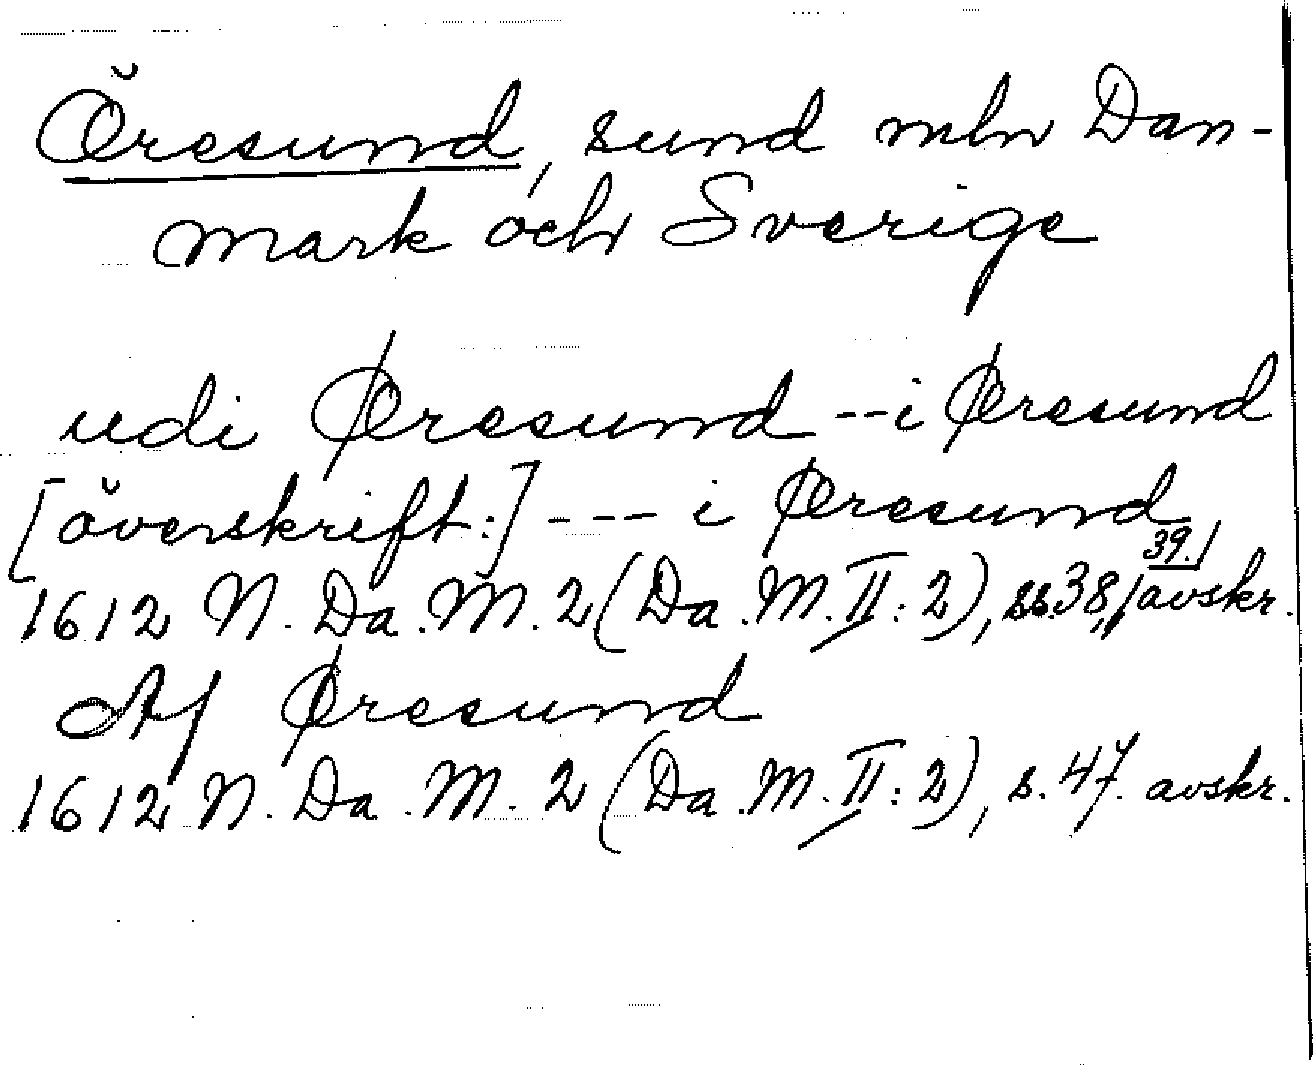 Öresund, sund mln Dan-
mark och Sverige
udi Øresund -- i Øresund
[överskrift:] --- i Øresund
1612 N. Da. M. 2 (Da. M. II: 2), ss. 38, 39. avskr.
Af Øresund
1612 N. Da. M. 2 (Da. M. II: 2), s. 47. avskr.